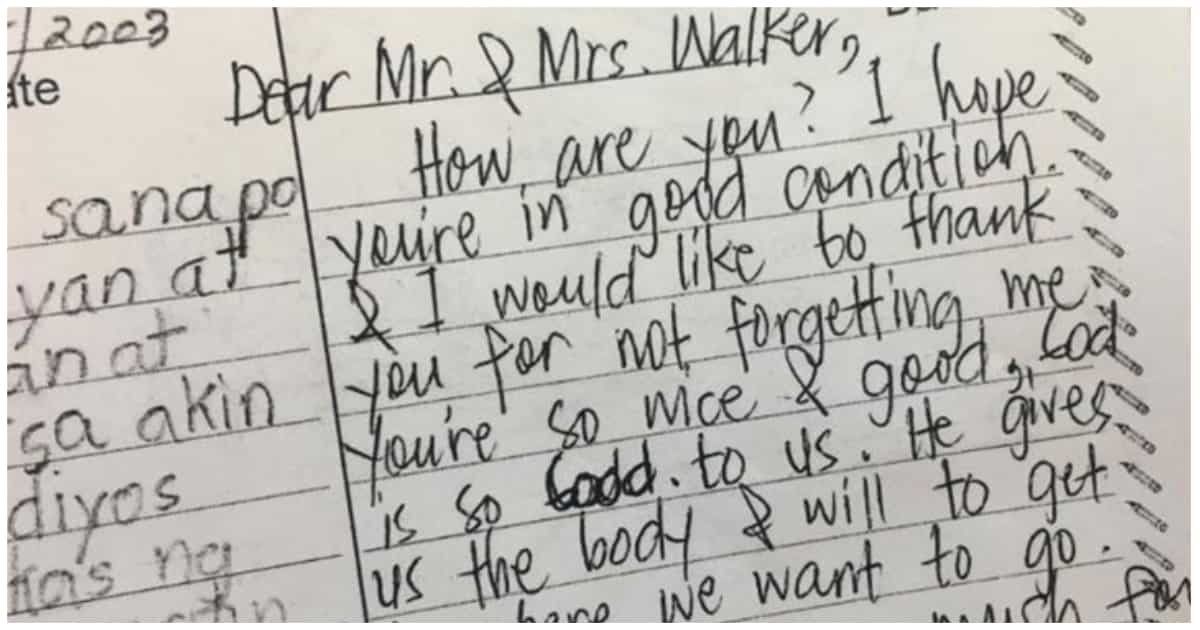 /2003
ate
sana po
yan at
an at
sa akin
diyos
ng
Dear Mr. & Mrs. Walker,
How are you? I hope
you're in good condition.
& I would like to thank
you for not forgetting me.
You're so nice & good. God
is so Good. to us. He gives
us the body & will to get
here we want to go.
much for